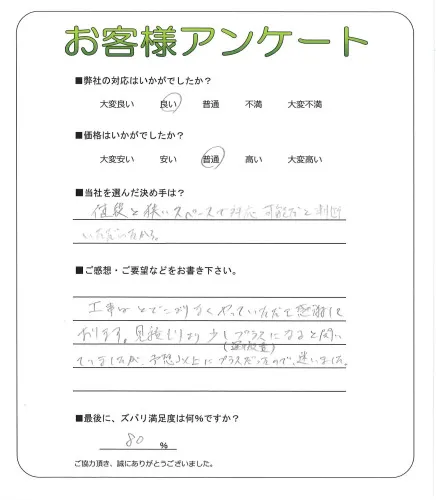 お客様アンケート
■弊社の対応はいかがでしたか？
大変良い 良い 普通 不満 大変不満
■価格はいかがでしたか？
大変安い 安い 普通 高い 大変高い
■当社を選んだ決め手は？
値段と狭いスペースで対応可能だと判断
いただいたから。
■ご感想・ご要望などをお書き下さい。
工事はとどこおりなくやっていただき感謝して
おります。見積もりより少しプラスになると伺い
(追加料金)
ていましたが、予想以上にプラスだったので、迷いました。
■最後に、ズバリ満足度は何％ですか？
80 ％
ご協力頂き、誠にありがとうございました。